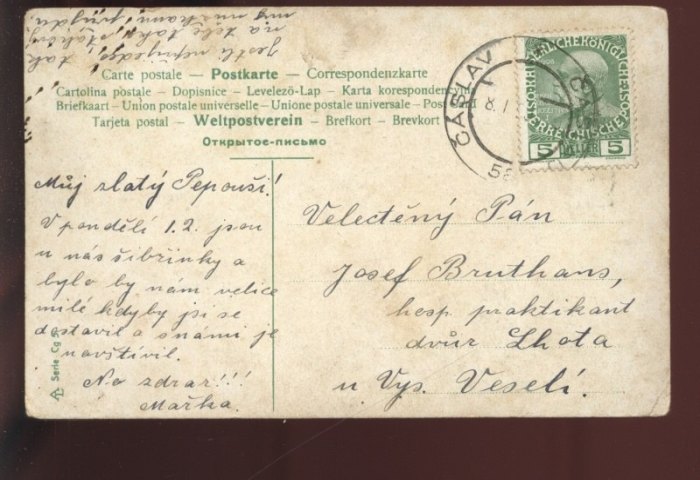 Carte postale — Postkarte — Correspondenzkarte
Cartolina postale – Dopisnice – Levelező-Lap – Karta korespondencyjna
Briefkaart – Union postale universelle – Unione postale universale – Post
Tarjeta postal – Weltpostverein – Brefkort – Brevkort
Открытое-письмо
ČÁSLAV
5 HELLER 5
Můj zlatý Pepouši!
V pondělí 1.2. jsou
u nás šibřinky a
bylo by nám velice
milé kdyby jsi se
dostavil a s námi je
navštívil.
No zdrar!!!
Mařka.
Velectěný Pán
Josef Bruthans,
hosp. praktikant
dvůr Lhota
u Vys. Veselí.
Serie Cg
Jestli nepřijedeš, tak
na tebe
my